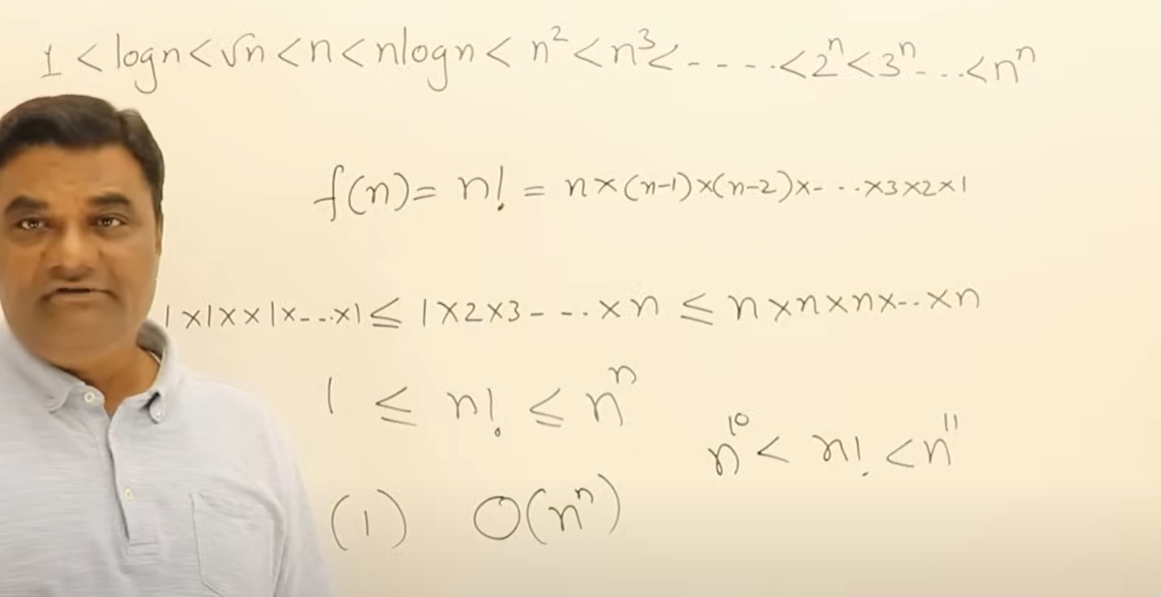 1 < logn < √n < n < nlogn < n² < n³ < - - - - < 2ⁿ < 3ⁿ - - . < nⁿ
f(n) = n! = n×(n-1)×(n-2)×- - . ×3×2×1
1×1××1×- - . ×1 ≤ 1×2×3 - - . . × n ≤ n×n×n×- . ×n
1 ≤ n! ≤ nⁿ
n¹⁰ < n! < n¹¹
(1) O(nⁿ)